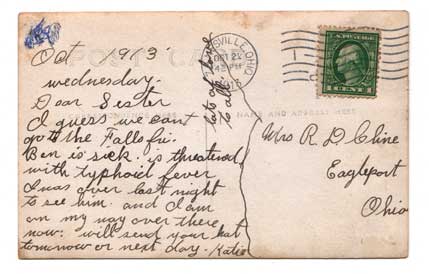 Oct 1913
POST CARD
wednesday.
Dear Sester
I guess we cant
go to the Falls fri.
Ben is sick. is threatened
with typhoid fever
I was over last night
to see him. and I am
on my way over there
now: will send your hat
tomorrow or next day - Katie
lots of love
to all.
SVILLE, OHIO
OCT 2
PM
NAME AND ADDRESS HERE
Mrs R D Cline
Eagleport
Ohio
1 CENT 1